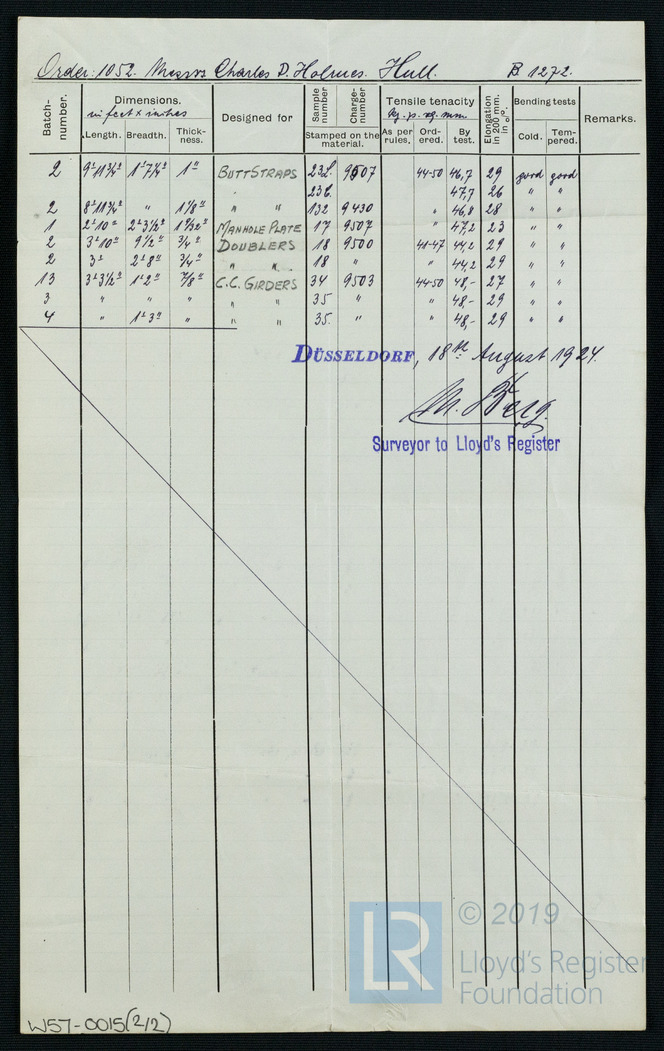 Order: 1052. Messrs Charles D. Holmes. Hull. B 1272.
Batch-number. Dimensions. in feet x inches Designed for Sample number Charge-number Tensile tenacity Kg. p. sq. mm. Elongation in 200 mm. in o/o. Bending tests Remarks.
Length. Breadth. Thick-ness. Stamped on the material. As per rules, Ord-ered. By test. Cold. Tem-pered.
2 9' 11¾" 1' 7¼" 1" BUTTSTRAPS 232. 9507 44-50 46,7 29 good good
" 232. 47,7 26 " "
2 8' 11¾" " 1⅛" " " 132 9430 " 46,8 28 " "
1 2' 10" 2' 3½" 1 9/32" MANHOLE PLATE 17 9507 " 47,2 23 " "
2 3' 10" 9½" ¾" DOUBLERS 18 9500 41-47 44,2 29 " "
2 3' 2' 8" ¾" " " 18 " " 44,2 29 " "
13 3' 3½" 1' 2" ⅞" C.C. GIRDERS 34 9503 44-50 48,- 27 " "
3 " " " " " 35 " " 48,- 29 " "
4 " 1' 3" " " " 35. " " 48,- 29 " "
DÜSSELDORF, 18th August 1924.
Berg.
Surveyor to Lloyd's Register
LR © 2019
Lloyd's Register
Foundation
W57-0015(2/2)